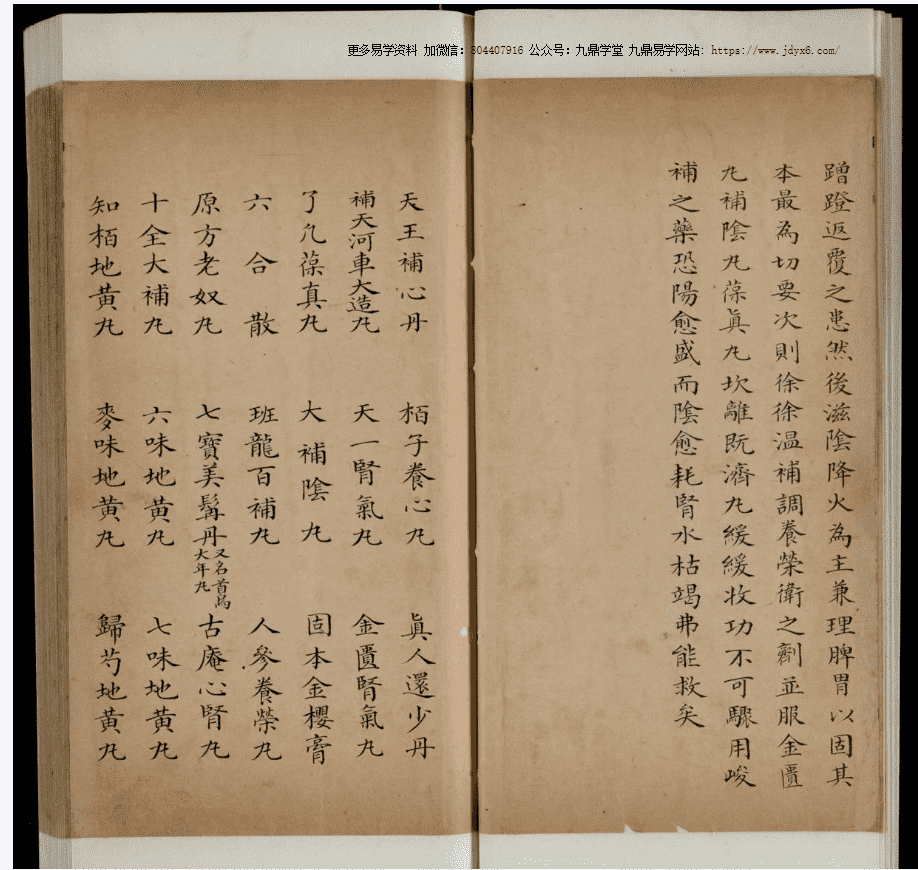 更多易学资料 加微信：804407916 公众号：九鼎学堂 九鼎易学网站：https://www.jdyx6.com/
蹭蹬返覆之患然後滋陰降火為主兼理脾胃以固其
本最為切要次則徐徐温補調養榮衛之劑並服金匱
丸補陰丸葆眞丸坎離既濟丸緩緩收功不可驟用峻
補之藥恐陽愈盛而陰愈耗腎水枯竭弗能救矣
天王補心丹 栢子養心丸 眞人還少丹
補天河車大造丸 天一腎氣丸 金匱腎氣丸
了凡葆真丸 大補陰丸 固本金櫻膏
六合散 班龍百補丸 人參養榮丸
原方老奴丸 七寶美髯丹又名首烏大年丸 古庵心腎丸
十全大補丸 六味地黃丸 七味地黃丸
知栢地黃丸 麥味地黃丸 歸芍地黃丸